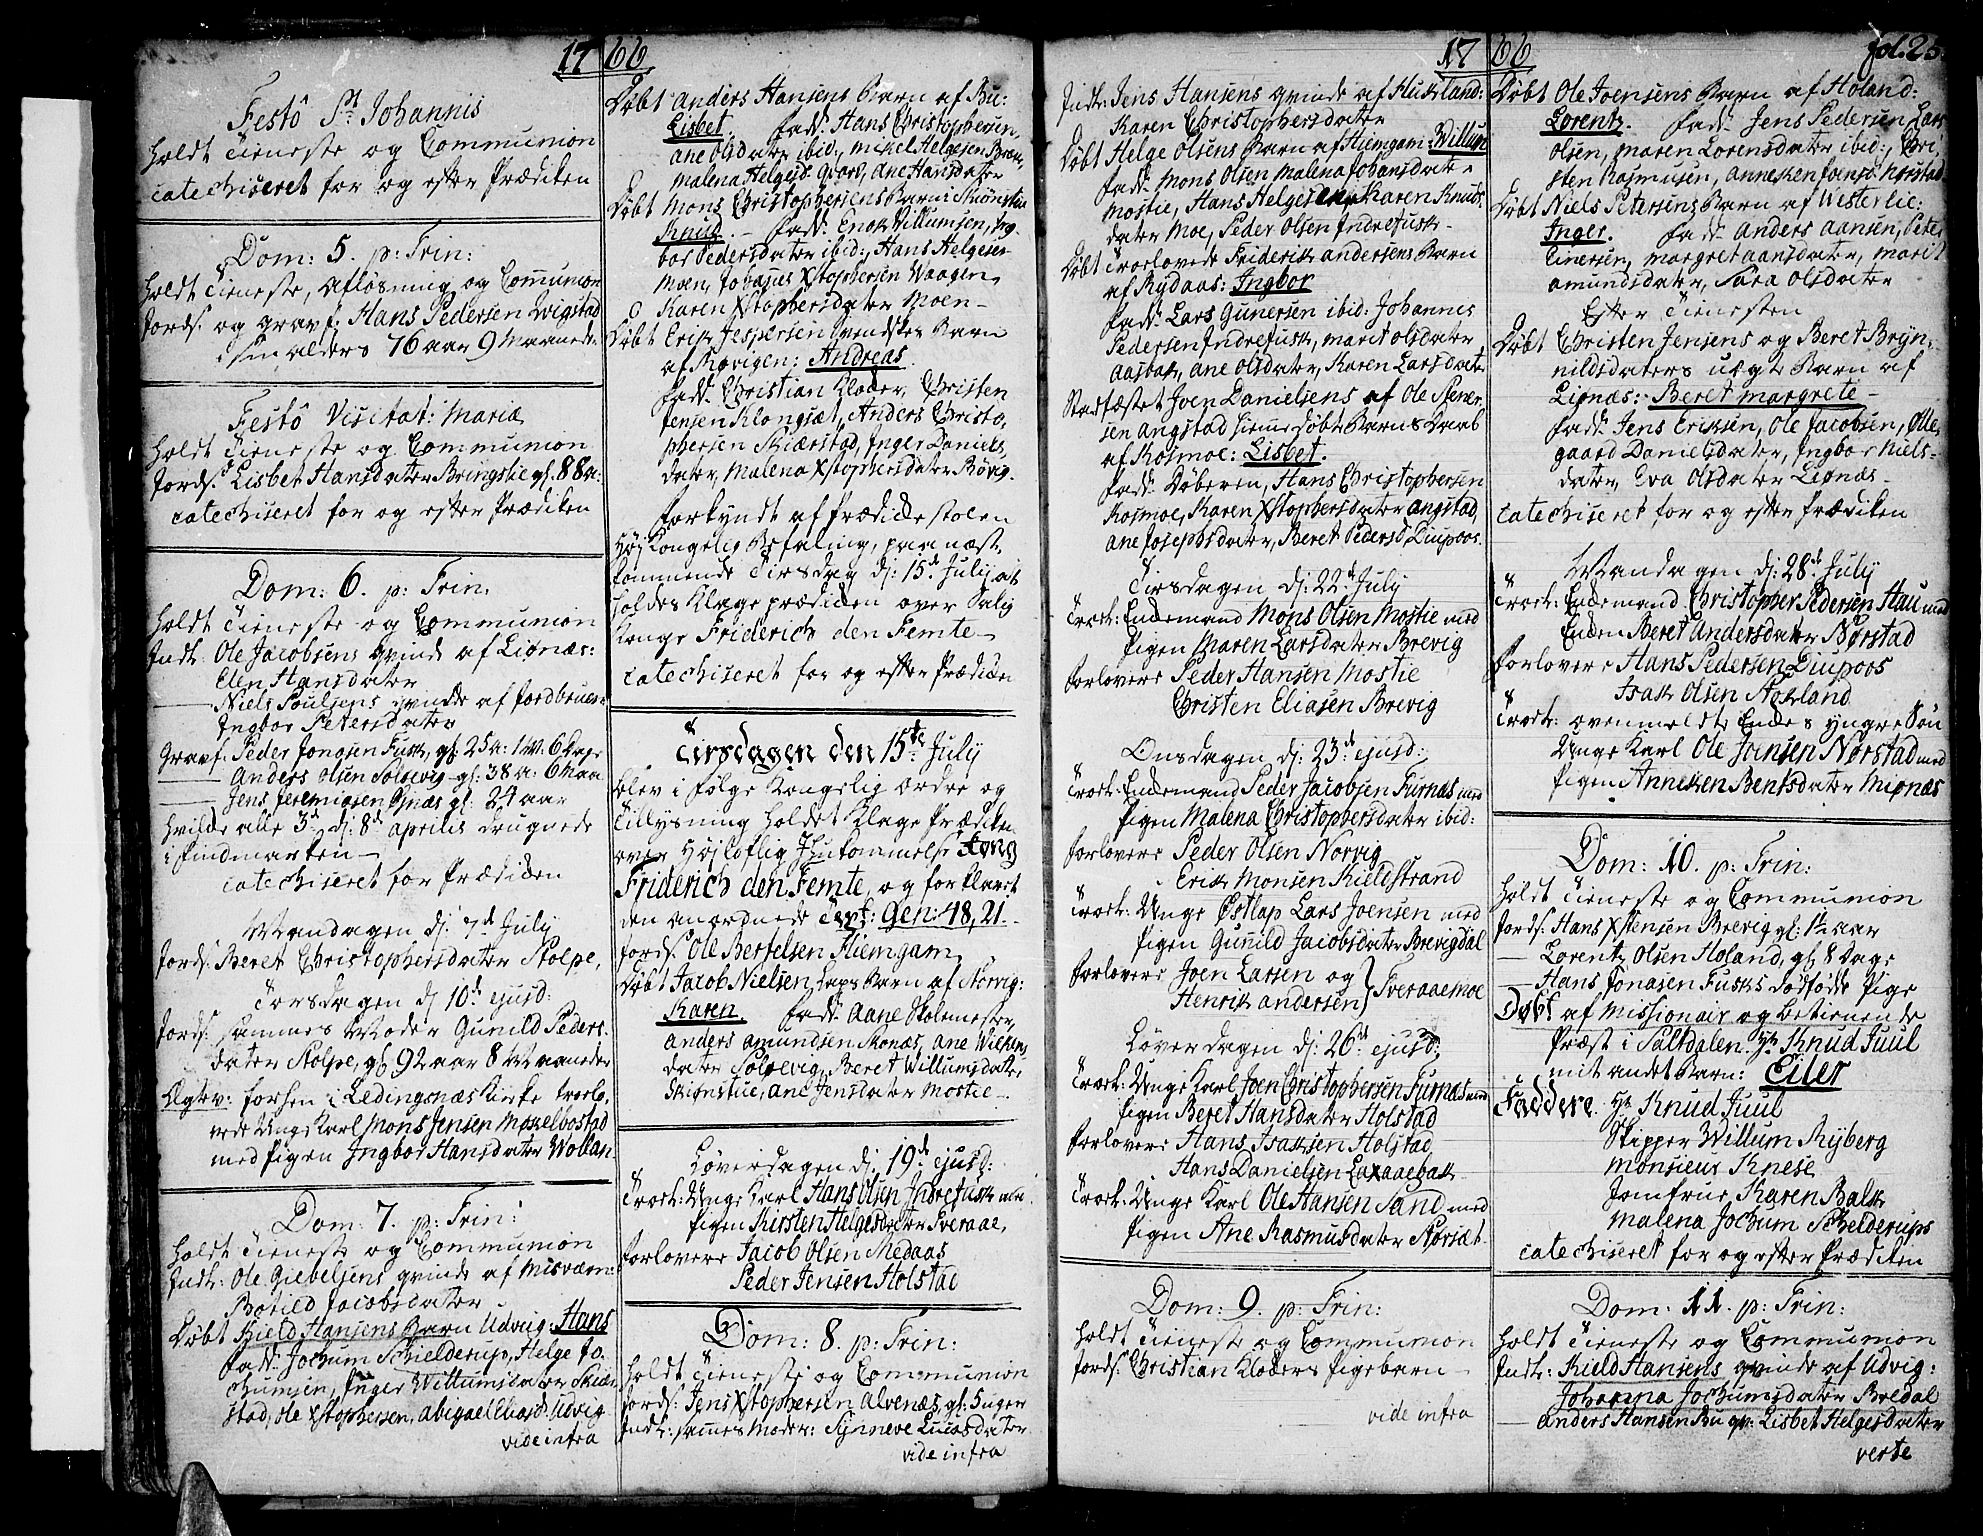 1766
Festô St Johannis
holdt Tieneste og Communion
catechiseret for og efter Prædiken
Dom: 5. p: Trin:
holdt Tieneste, Afløsning og Communion
Jords: og gravf: Hans Pedersen Wigstad
i sin alders 76 aar 9 Maaneder
Festô Visitat: Mariæ
holdt Tieneste og Communion
Jords: Lisbet Hansdater Bringslie gl: 88 a:
catechiseret for og efter Prædiken
Dom: 6. p: Trin:
holdt Tieneste og Communion
Indl: Ole Jacobsens qvinde af Liønæs:
Elen Hansdater
Niels Poulsens qvinde af Jordbruen:
Ingbor Petersdater
Gravf: Peder Jonasen Fusk, gl: 25 a: 1 M: 6 Dage
Anders Olsen Solsevig gl: 38 a: 6 Maa
Jens Jeremiasen gl: 24 aar
hvilke alle 3de dj: 8de aprilis druknede
i Findmarken
catechiseret for Prædiken
Mandagen dj: 7de July
Jords: Beret Christophersdater Stolpe,
Torsdagen dj 10de ejusd:
Jords: sammes Moder Gunild Peders
dater Stolpe, gl: 92 aar 8 Maaneder
Copulev: forhen i Ledingsnæs Kirke trolo,
vede Unge Karl Mons Jensen Moxelbostad
med Pigen Ingbor Hansdater Wollan
Dom: 7. p: Trin:
holdt Tieneste og Communion
Indl: Ole Giebelsens qvinde af Misvær:
Botild Jacobsdater
Døbt Kield Hansens Barn Udvig: Hans
Fadd: Jochum Schielderup, Helge Jo,
chumsen, Inger Willumsdater Skier
stad, Ole Xstophersen, Abigael Eliasd: Udvig
vide infra
Døbt Anders Hansens Barn af Bu:
Lisbet. Fadd: Hans Christophersen,
Ane Olsdater ibid:, Mikel Helgesen
Malena Helgesd: Ane Hansdater
Døbt Mons Christophersens Barn: Skiønstue
Knud. Fadd: Enok Willumsen, Ing
bor Pedersdater ibid:, Hans Helgesen
Moen, Johanes Xstophersen Waagen,
Karen Xstophersdater Moen
Døbt Erik Jespersen Svendsens Barn
af Røvigen: Andreas
Fadd: Christian Kloder, Christen
Jensen Klongsæt, Anders Christo,
phersen Skierstad, Inger Daniels,
dater, Malena Xstophersdater Røvig.
Forkyndt af Prædikestolen
Høj Kongelig Befaling, paa næst
kommende Tirsdag dj: 15de July at
holdes Klageprædiken over Salig
Konge Friderich den Femte
catechiseret for og efter Prædiken
Tirsdagen den 15de July
blev i følge Kongelig Ordre og
Tillysning holdet Klage Prædiken
over Højloflig Ihukommelse Kong
Friderich den Femte, og forklaret
den anordnede Text: Gen: 48, 21.
Jords: Ole Bertelsen Hiemgam
Døbt Jacob Nielsen Laps Barn af Norvig:
Karen. Fadd: Aane Skolemester,
Anders Amundsen Skonæs, Ane
dater Solsevig, Beret Willumsdater
Skiønstue, Ane Jensdater Mostie
Løverdagen dj: 19de ejusd:
Trol: Unge Karl Hans Olsen Indrefusk med
Pigen Kirsten Helgesdater Sveraae,
Forlovere Jacob Olsen Medaas
Peder Jensen Holstad
Dom: 8. p: Trin:
holdt Tieneste og Communion
Jords: Jens Xstophersen Alvenæs, gl: 5 uger
Indl: sammes Moder: Synneve Lucasdater
vide infra
1766
Indl: Jens Hansens qvinde af Huseland:
Karen Christophersdater
Døbt Helge Olsens Barn af Hiemgam: Willum
Fadd: Mons Olsen Malena Johansdater
Mostie, Hans Helgesen Karen Knuds,
dater Moe, Peder Olsen Indrefusk
Døbt Trolovede Friderik Andersens Barn
af Rydaas: Ingbor
Fadd: Lars Gunersen ibid: Johannes
Pedersen Indrefusk, Marit Olsdater
Aasbak, Ane Olsdater, Karen Larsdater
Stadfæstet Joen Danielsens af Ole Stener
sen Angstad hiemedøbt Barns Daab
af Rosmoe: Lisbet.
Fadd: Døberen, Hans Christophersen
Kosmoe, Karen Xstophersdater Angstad,
Ane Josephsdater, Beret Pedersd Diupoos.
Tirsdagen dj: 22de July
Trol: Enkemand Mons Olsen Mostie med
Pigen Maren Larsdater Brevig
Forlovere Peder Hansen Mostie
Christen Eliasen Brevig
Onsdagen dj: 23de ejusd:
Trol: Enkemand Peder Jacobsen Furnæs med
Pigen Malena Christophersdater ibid:
Forlovere Peder Olsen Norvig
Erik Monsen Kieldstrand
Trol: Unge Østlap Lars Joensen med
Pigen Gunild Jacobsdater Brevigdal
Forlovere Joen Larsen og
Henrik Andersen } Sveraaemoe
Løverdagen dj: 26de ejusd:
Trol: Unge Karl Joen Christophersen Furnæs med
Pigen Beret Hansdater Holstad
Forlovere Hans Isaksen Holstad
Hans Danielsen Laxaaebak
Trol: Unge Karl Ole Hansen Sand med
Pigen Ane Rasmusdater Norsæt
Dom: 9. p: Trin:
holdt Tieneste og Communion
Jords: Christian Kloders Pigebarn
vide infra
fol. 25.
Døbt Ole Joensens Barn af Høland:
Lorentz. Fadd: Jens Pedersen Lars
Olsen, Maren Lorensdater ibid:, Chri,
sten Rasmusen, Anneken Joensd: Norstad
Døbt Niels Petersens Barn af Westerlie:
Inger. Fadd: Anders Aansen, Peter
Einersen, Margret Aansdater, Marit
Amundsdater, Sara Olsdater
Efter Tienesten
Døbt Christen Jensens og Beret Bryn,
nildsdaters uægte Barn af
Lignæs: Beret Margrete
Fadd: Jens Eriksen, Ole Jacobsen, Olle,
gaard Danielsdater, Ingbor Niels-
dater, Eva Olsdater Lignæs
catechiseret for og efter Prædiken
Mandagen dj: 28de July
Trol: Enkemand Christopher Pedersen Hau med
Enken Beret Andersdater Nørstad
Forlovere Hans Pedersen Diupoos
Isak Olsen Nokland
Trol: ovenmeldte Enkes yngre Søn
Unge Karl Ole Joensen Nørstad med
Pigen Anneken Bentsdater Mignæs
Dom: 10. p: Trin:
holdt Tieneste og Communion
Jords: Hans Xstensen Brevig gl: 1½ aar
Lorentz Olsen Høland, gl: 8 Dage
Hans Jonasen Fusks dødfødde Pige
Døbt af Missionair og betienende
Præst i Saltdalen Hr Knud Juul
mit andet Barn: Eiler
Faddere. Hr Knud Juul
Skipper Willum Ryberg
Monsieur Knese
Jomfrue Karen Balk
Malena Jochum Schelderups
catechiseret for og efter Prædiken
Dom: 11. p: Trin:
holdt Tieneste og Communion
Indl: Kield Hansens qvinde af Udvig:
Johanna Jochumsdater Bredal
Anders Hansen Bu qv: Lisbet Helgesdater
verte